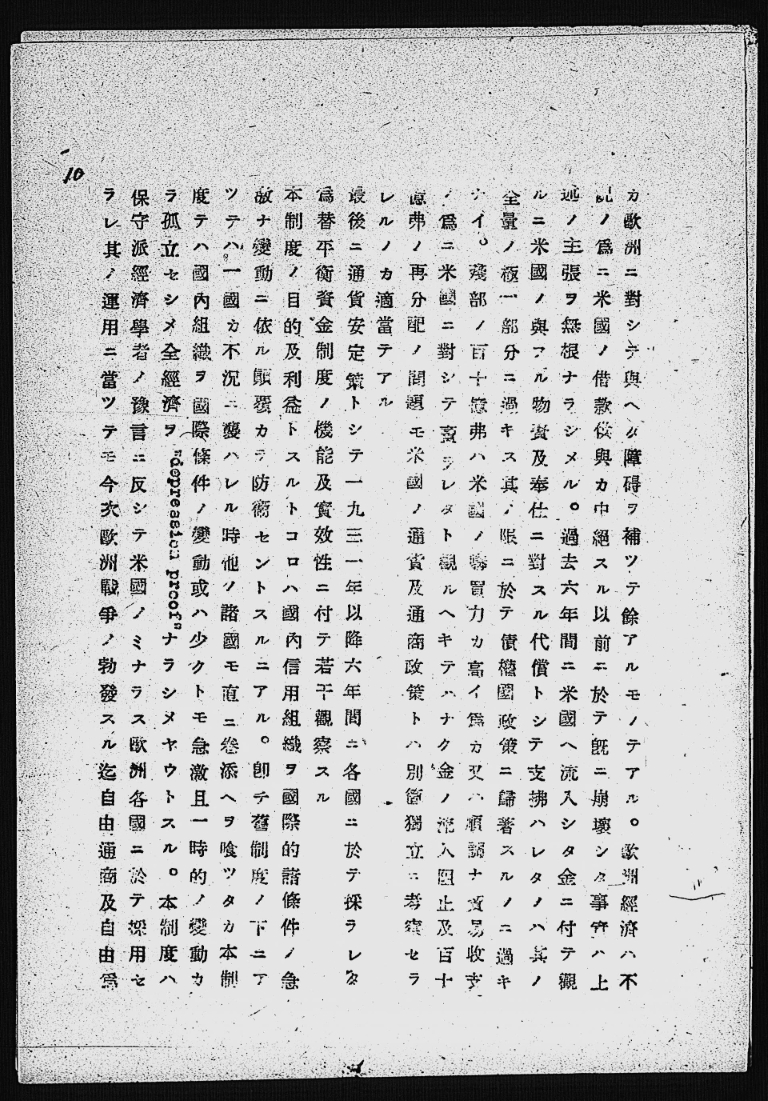 カ歐洲ニ對シテ與ヘタ障碍ヲ補ツテ餘アルモノテアル。歐洲經濟ハ不
況ノ爲ニ米國ノ借款供與カ中絶スル以前ニ於テ既ニ崩壞シタ事實ハ上
述ノ主張ヲ無根ナラシメル。過去六年間ニ米國ヘ流入シタ金ニ付テ觀
ルニ米國ノ與フル物資及奉仕ニ對スル代償トシテ支拂ハレタノハ其ノ
全量ノ極一部分ニ過キス其ノ限ニ於テ債權國政策ニ歸著スルノニ過キ
ナイ。殘部ノ百十億弗ハ米國ノ購買力カ高イ爲カ又ハ順調ナ貿易收支
ノ爲ニ米國ニ對シテ賣ラレタト觀ルヘキテハナク金ノ流入阻止及百十
億弗ノ再分配ノ問題モ米國ノ通貨及通商政策トハ別箇獨立ニ考察セラ
レルノカ適當テアル
最後ニ通貨安定策トシテ一九三一年以降六年間ニ各國ニ於テ採ラレタ
爲替平衡資金制度ノ機能及實效性ニ付テ若干觀察スル
本制度ノ目的及利益トスルトコロハ國內信用組織ヲ國際的諸條件ノ急
激ナ變動ニ依ル顚覆カラ防衞セントスルニアル。卽チ舊制度ノ下ニア
ツテハ一國カ不況ニ襲ハレル時他ノ諸國モ直ニ卷添ヘヲ喰ツタカ本制
度テハ國內組織ヲ國際條件ノ變動或ハ少クトモ急激且一時的ノ變動カ
ラ孤立セシメ全經濟ヲ "depression proof" ナラシメヤウトスル。本制度ハ
保守派經濟學者ノ豫言ニ反シテ米國ノミナラス歐洲各國ニ於テ採用セ
ラレ其ノ運用ニ當ツテモ今次歐洲戰爭ノ勃發スル迄自由通商及自由爲
10